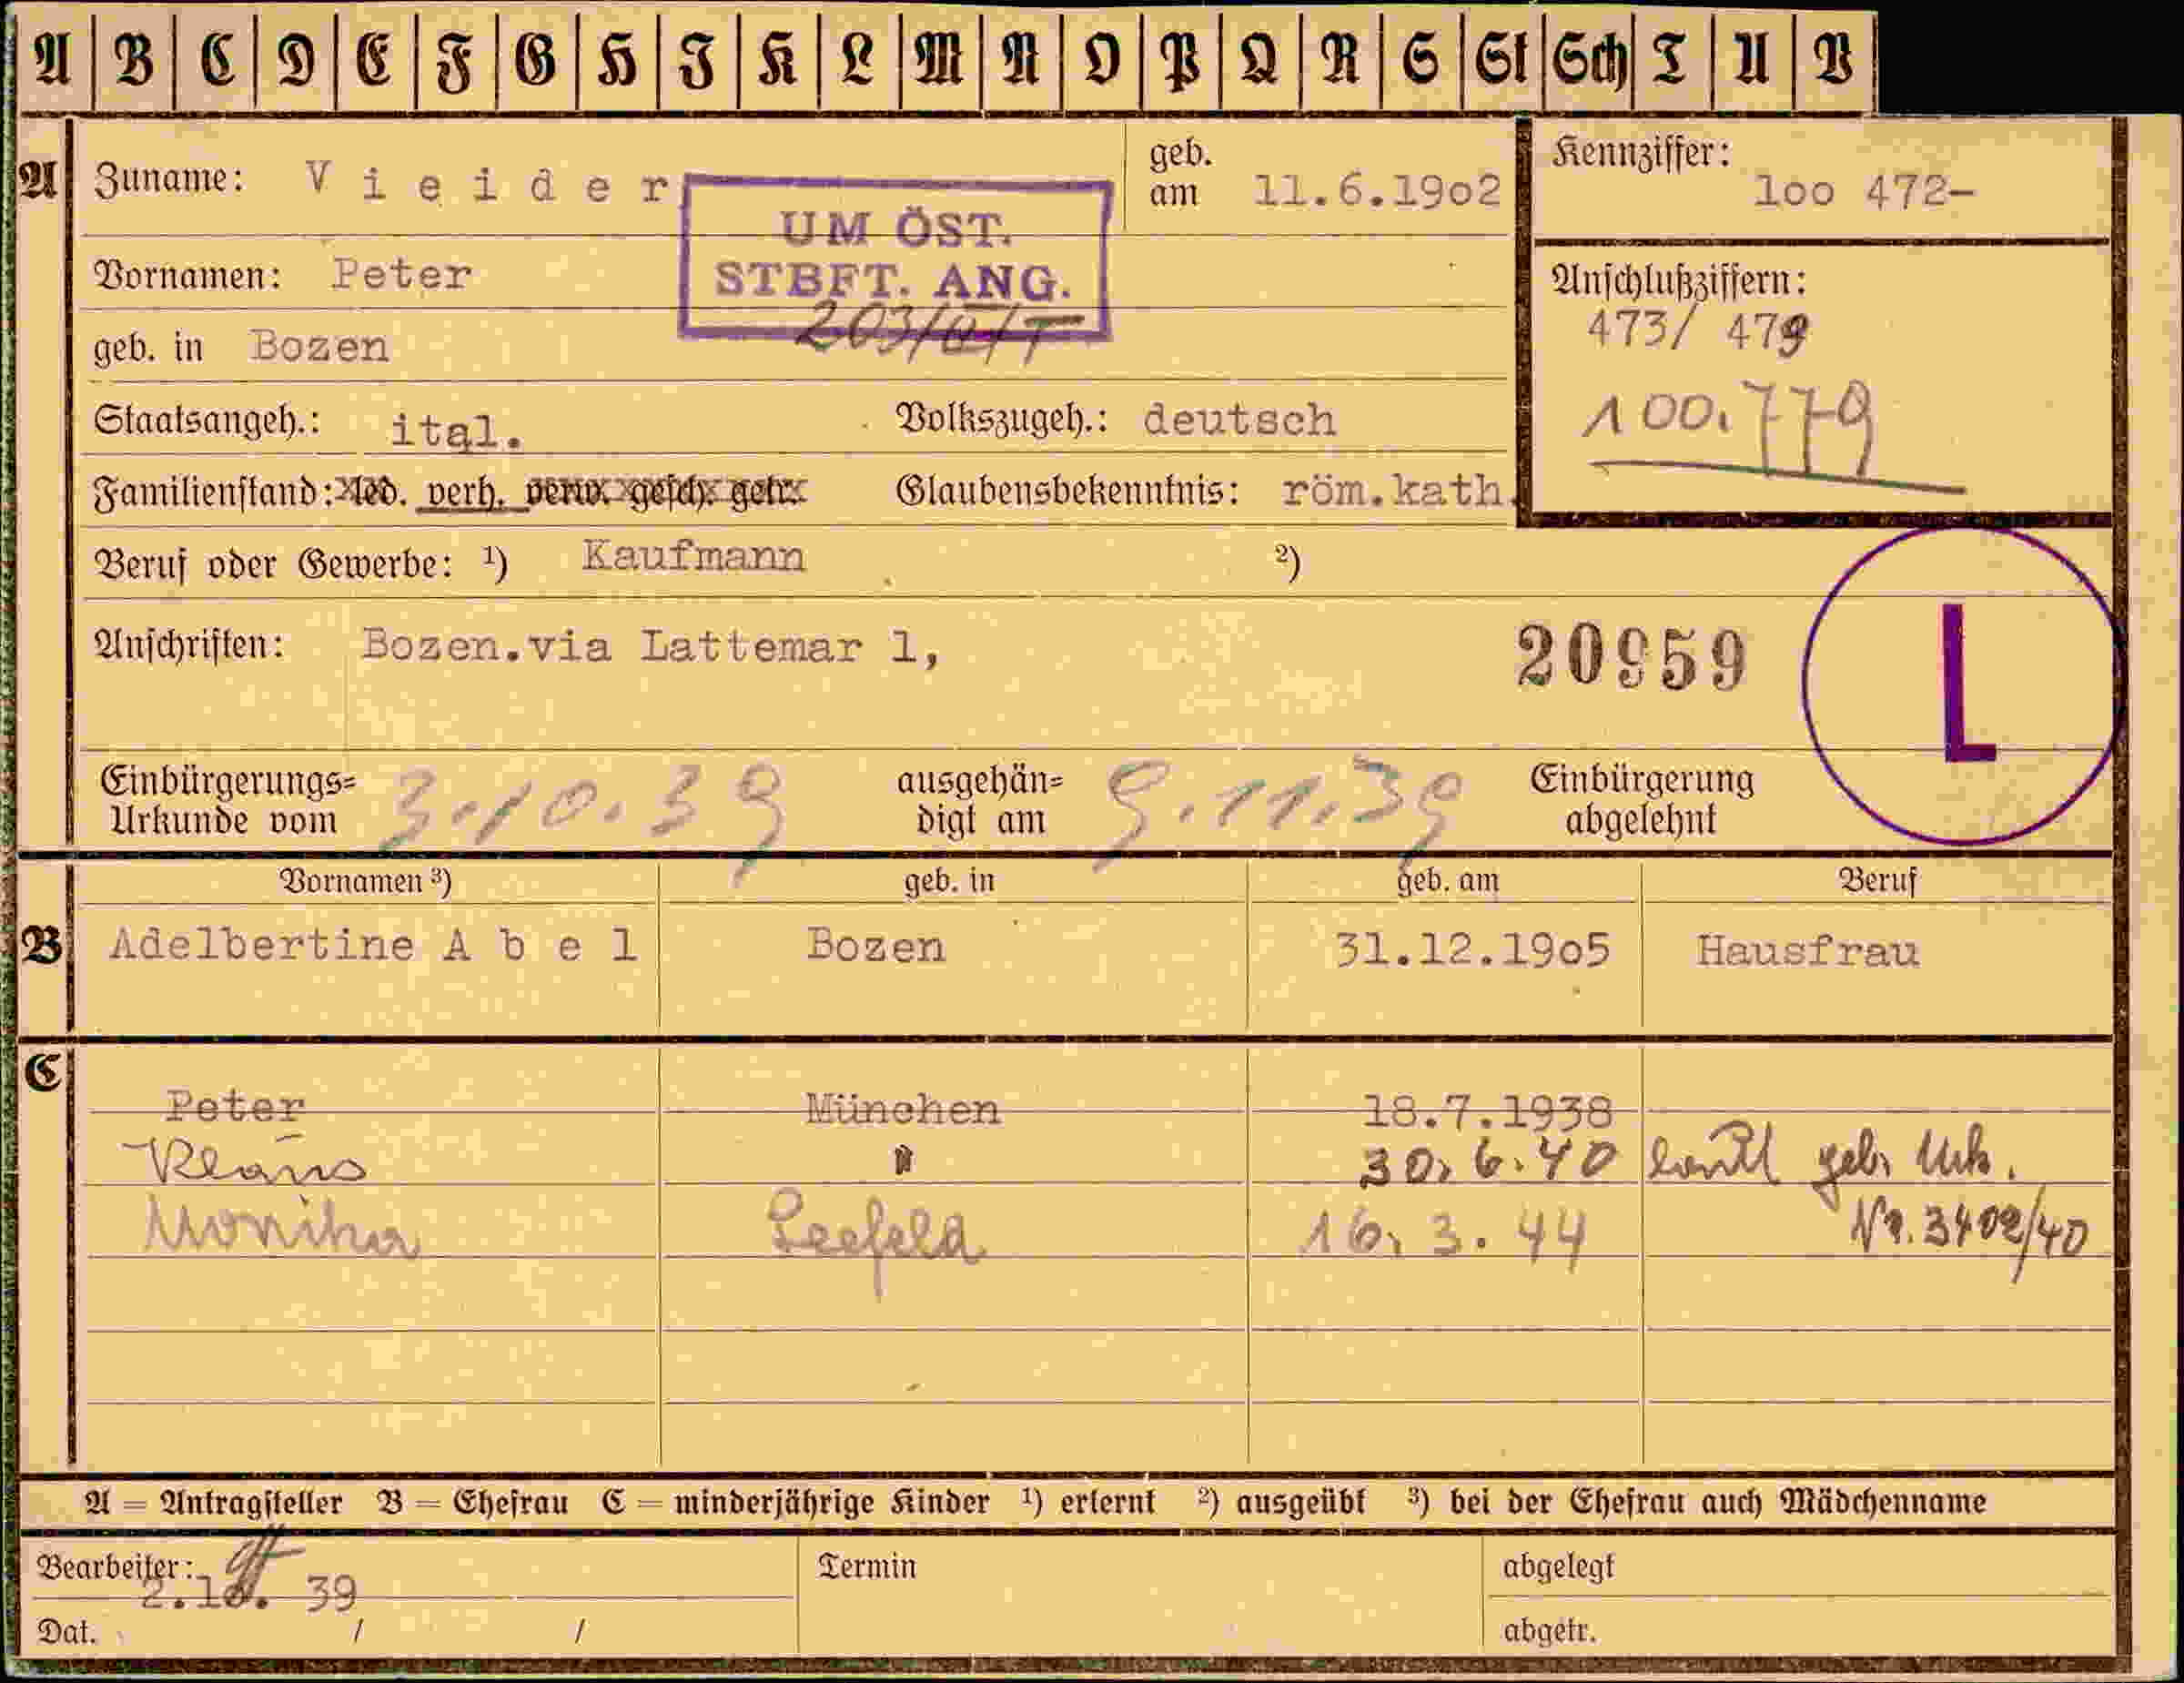 A B C D E F G H J K L M N O P Q R S St Sch T U V
A Zuname: V i e i d e r geb. am 11.6.19o2 Kennziffer: loo 472-
UM ÖST.
STBFT. ANG.
Vornamen: Peter Anschlußziffern:
473/ 479
geb. in Bozen
100.779
Staatsangeh.: ital. Volkszugeh.: deutsch
Familienstand: led. verh. verw. gesch. getr. Glaubensbekenntnis: röm.kath.
Beruf oder Gewerbe: ¹) Kaufmann ²)
Anschriften: Bozen.via Lattemar 1, 20959 L
Einbürgerungs=
Urkunde vom 3.10.39 ausgehän=
digt am 9.11.39 Einbürgerung
abgelehnt
Vornamen ³) geb. in geb. am Beruf
B Adelbertine A b e l Bozen 31.12.19o5 Hausfrau
C
Peter München 18.7.1938
Klaus " 30.6.40 lautl geb. Urk.
Monika Seefeld 16.3.44 Nr. 3402/40
A = Antragsteller B = Ehefrau C = minderjährige Kinder ¹) erlernt ²) ausgeübt ³) bei der Ehefrau auch Mädchenname
Bearbeiter: Termin abgelegt
2.10. 39
Dat. / / abgetr.